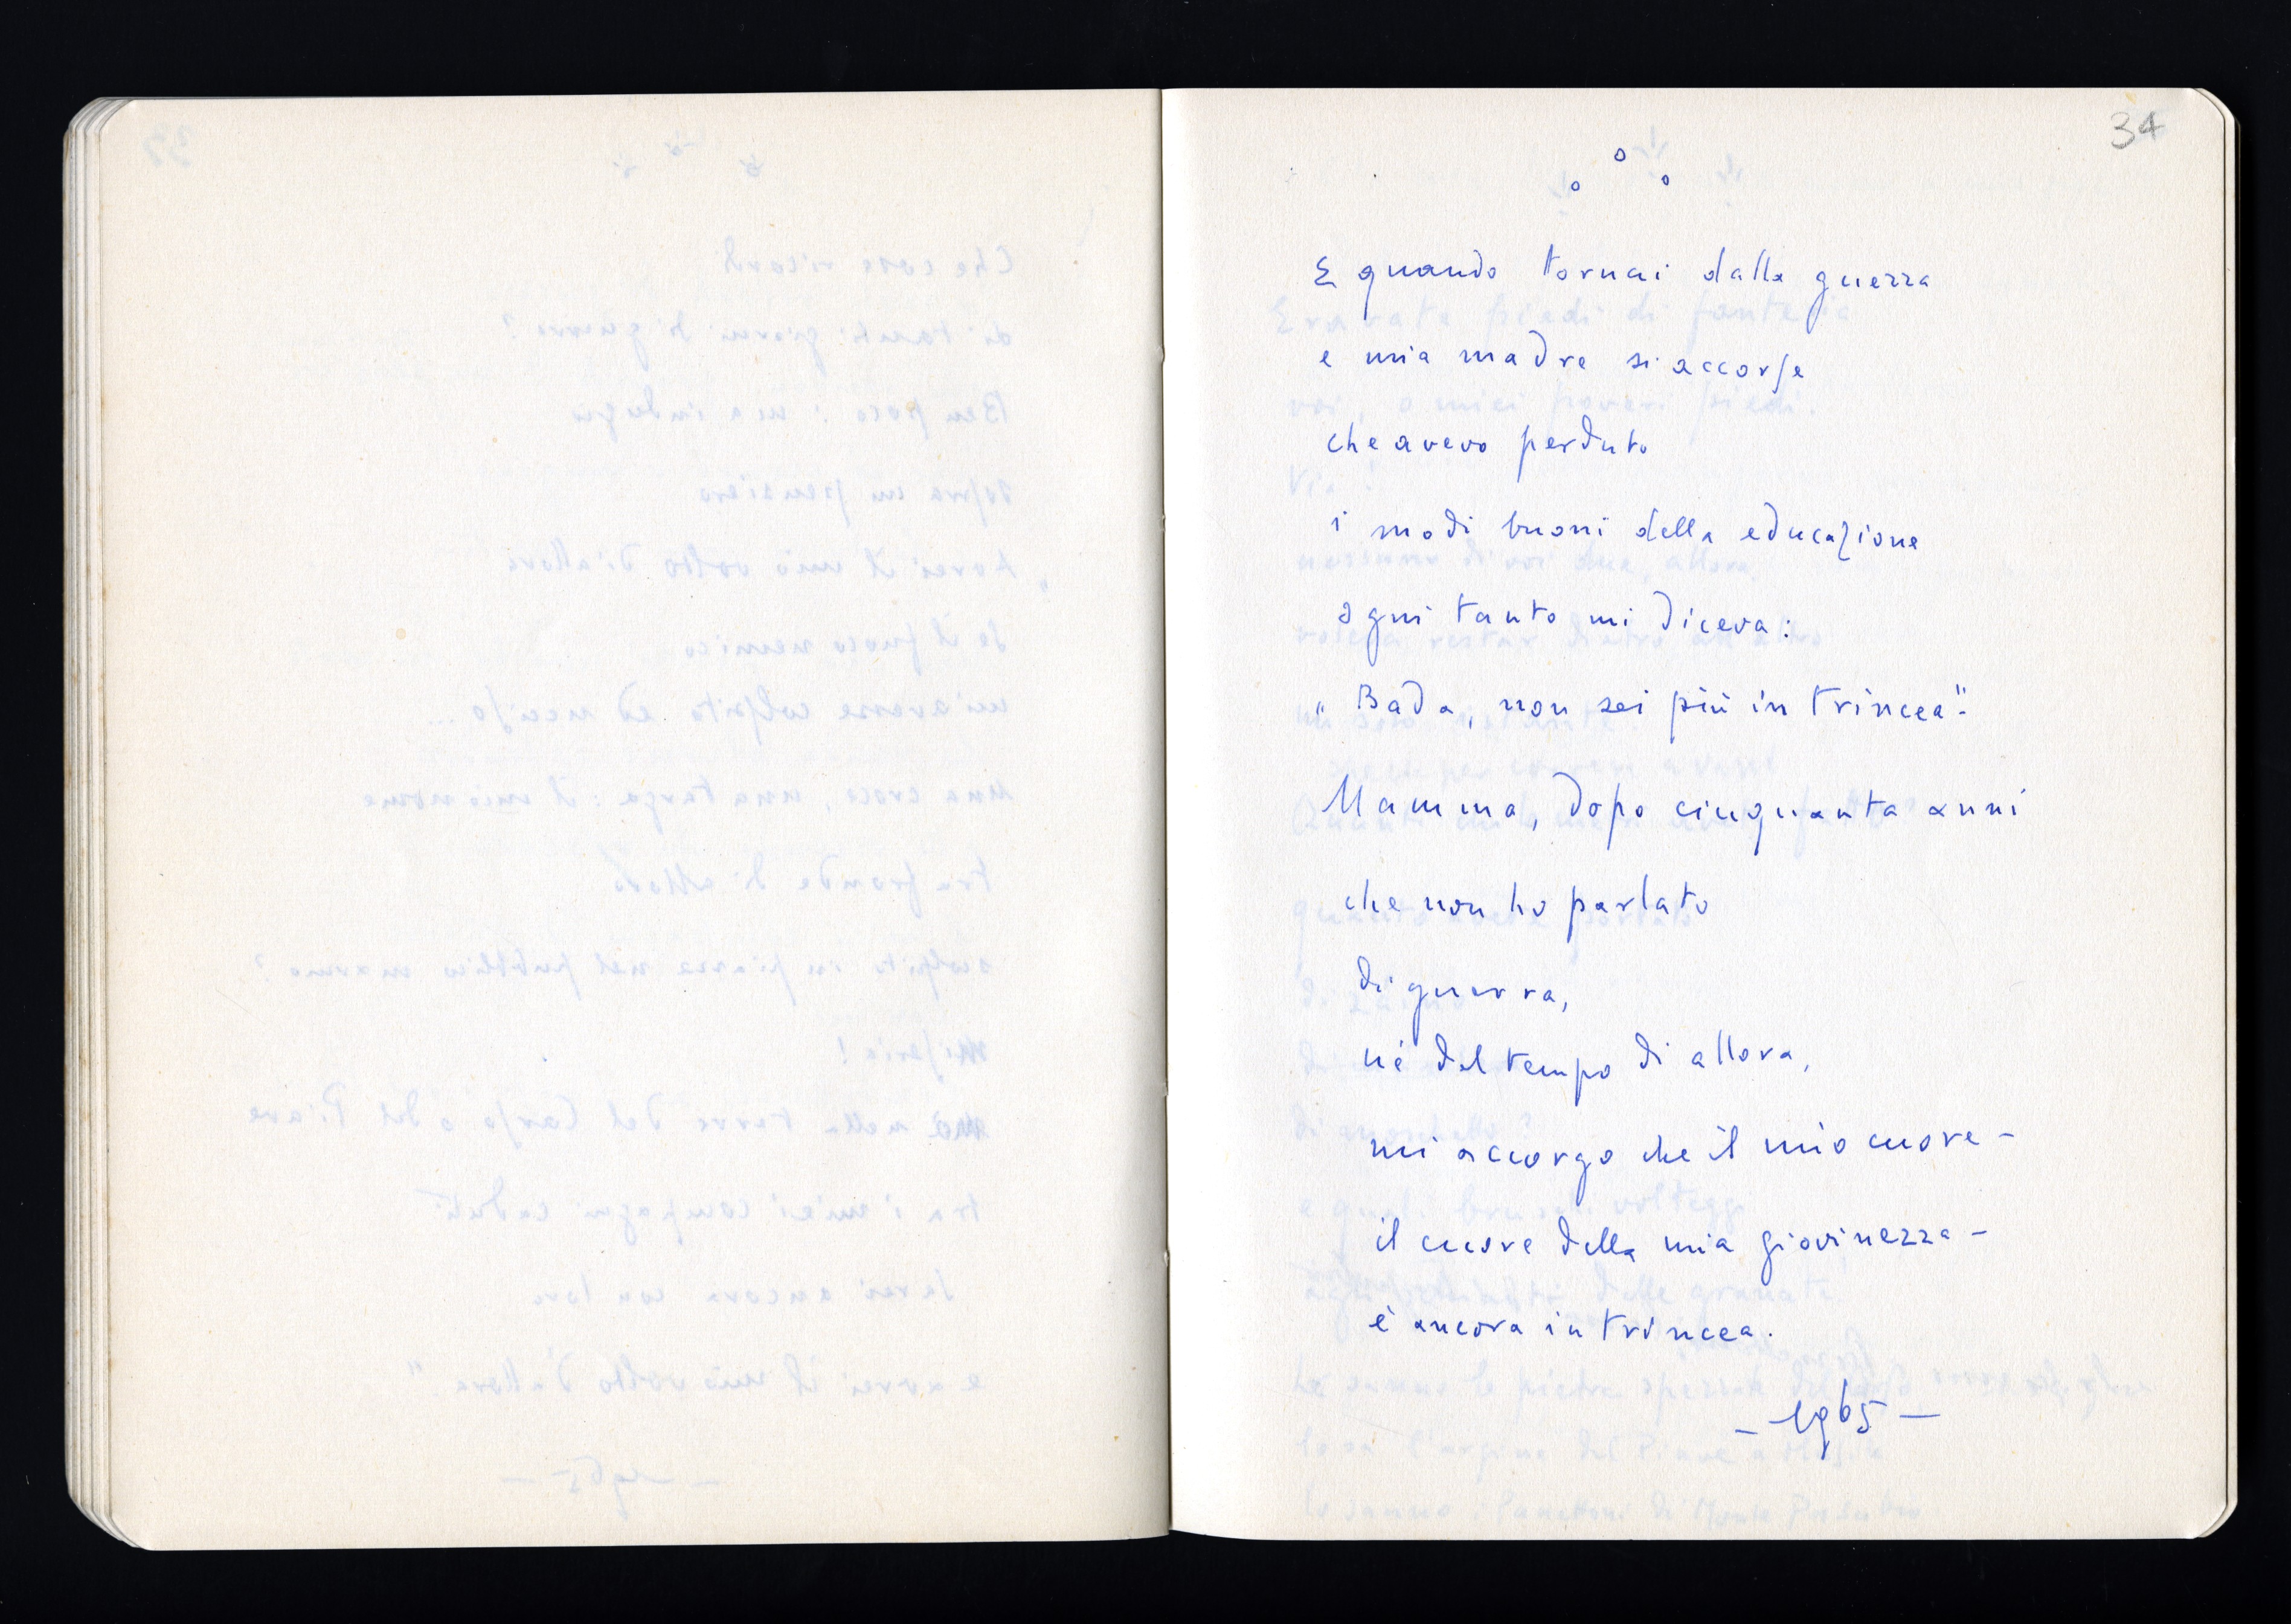 34
E quando tornai dalla guerra
e mia madre si accorse
che avevo perduto
i modi buoni della educazione
ogni tanto mi diceva:
„ Bada, non sei più in trincea".
Mamma, dopo cinquanta anni
che non ho parlato
di guerra,
nè del tempo di allora,
mi accorgo che il mio cuore –
il cuore della mia giovinezza –
è ancora in trincea.
– 1965 –